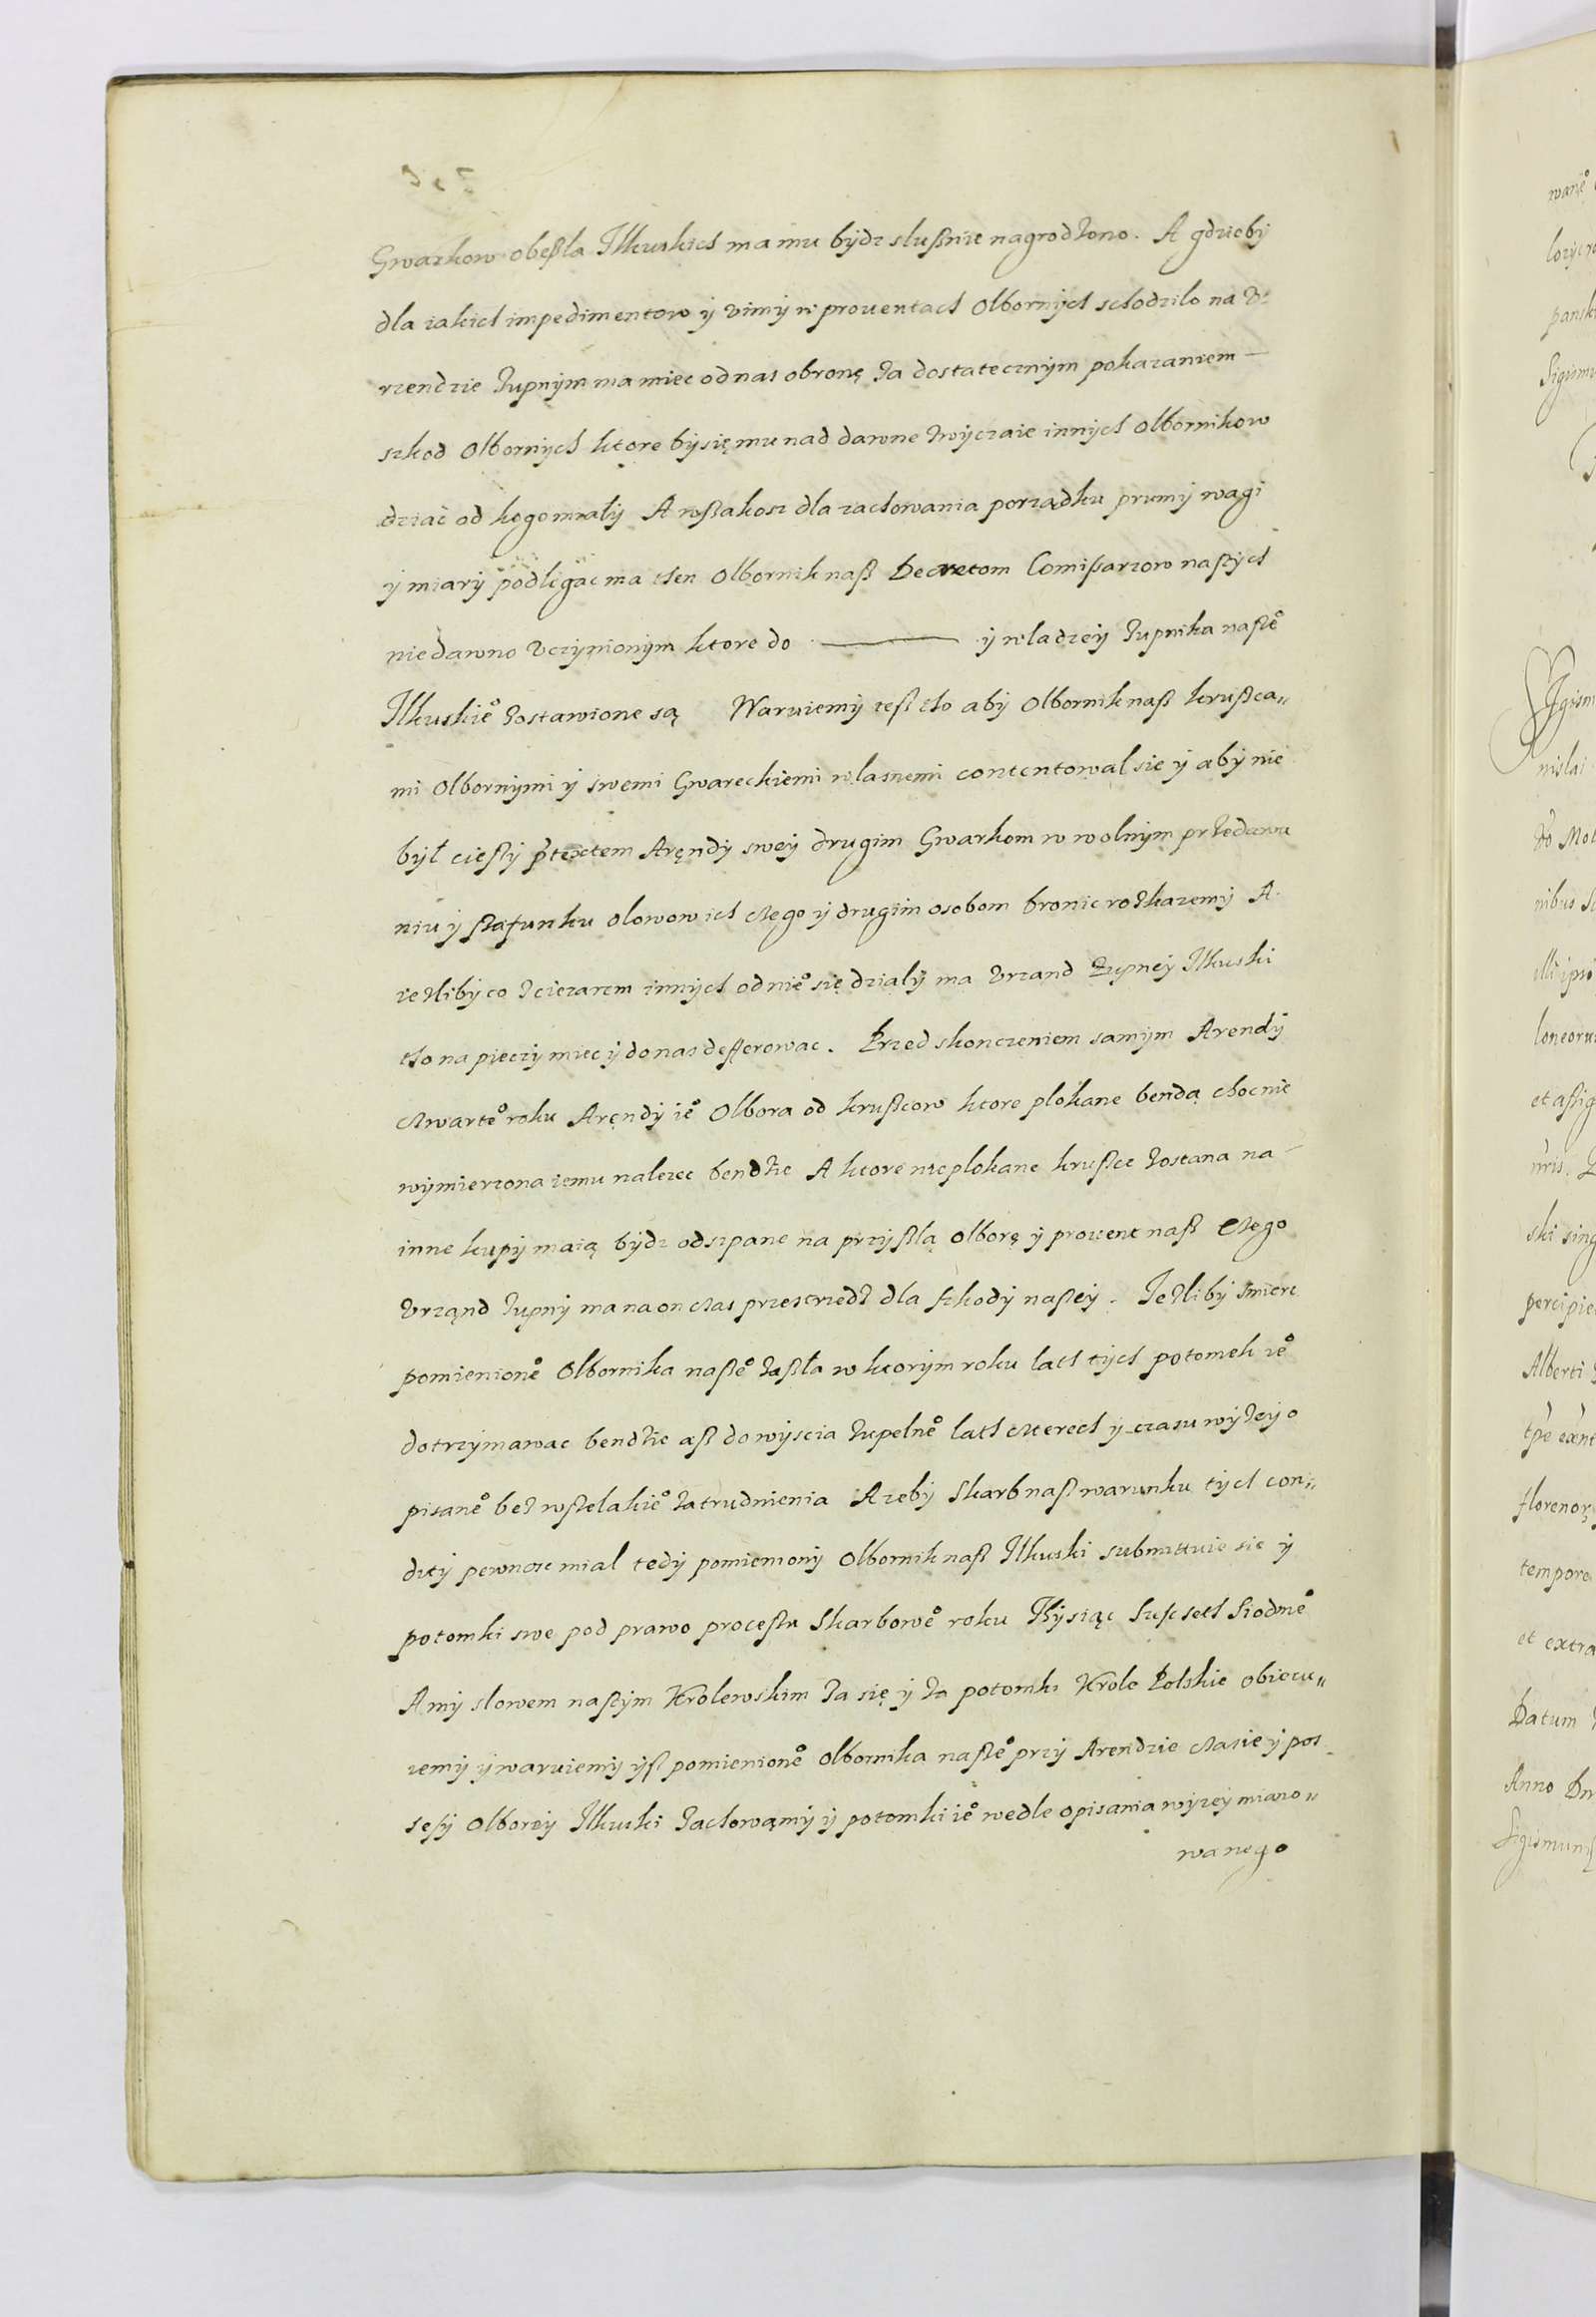 Gwarkow obeßla Ilkuskich ma mu bydz slußnie nagrodzono. A gdzieby
dla iakich impedimentow y vimy w prouentach Olbornych schodzilo na V:
rzendzie Zupnym ma miec od nas obronę Za dostatecznym pokazaniem —
szkod Olbornych ktore by się mu nad dawne Zwyczaie innych olbornikow
dziać od kogo miały A wßakosz dla zachowania porządku prumy wagi
y miary podlegac ma then Olbornik naß Decretom Comißarzow naßych
niedawno Vczynionym ktore do ——— y wladzey Zupnika naßeº
Ilkuskieº Zostawione są Waruiemy teß tho aby Olbornik naß krußca„
mi Olbornymi y swemi Gwareckiemi wlasnemi contentowal sie y aby nie
był cießy ptextem Aręndy swey drugim Gwarkom w wolnym przedawa
niu y ßafunku olowow ich czego y drugim osobom bronic rozkazemy A
iezliby co Zciezarem innych od nieº się dzialy ma Vrzand Zupney Ilkuski
tho na pieczy miec y do nas defferowac. Przed skonczeniem samym Arendy
czwarteº roku Aręndy ieº Olbora od krußcow ktore plokane bendą choc nie
wymierzona iemu nalezec bendzie A ktore nieplokane krußce Zostana na —
inne kupy maią bydz odszpane na przyßlą olborę y prouent naß Czego
Vrząnd Zupny ma na on czas przestrzedz dla szkody naßey. Iezliby smierc
pomienioneº Olbornika naßeº Zaßła w ktorym roku lath tych potomek ieº
dotrzymawac bendzie aß do wyscia Zupelneº lath czterech y czasu wyzey o
pisaneº bez wßelakieº Zatrudnienia A zeby Skarb naß warunku tych con„
dicy pewnosc mial tedy pomieniony Olbornik naß Ilkuski submittuie sie y
potomki swe pod prawo proceßu Skarboweº roku Thysiąc Szescseth Siodmeº
A my slowem naßym Krolewskim Za się y Za potomki Krole Polskie obiecu„
iemy y waruiemy yß pomienioneº olbornika naßeº przy Arendzie czasie y pos
seßy Olborey Ilkuski Zachowąmy y potomki ieº wedle opisania wyzey miano„
wanego